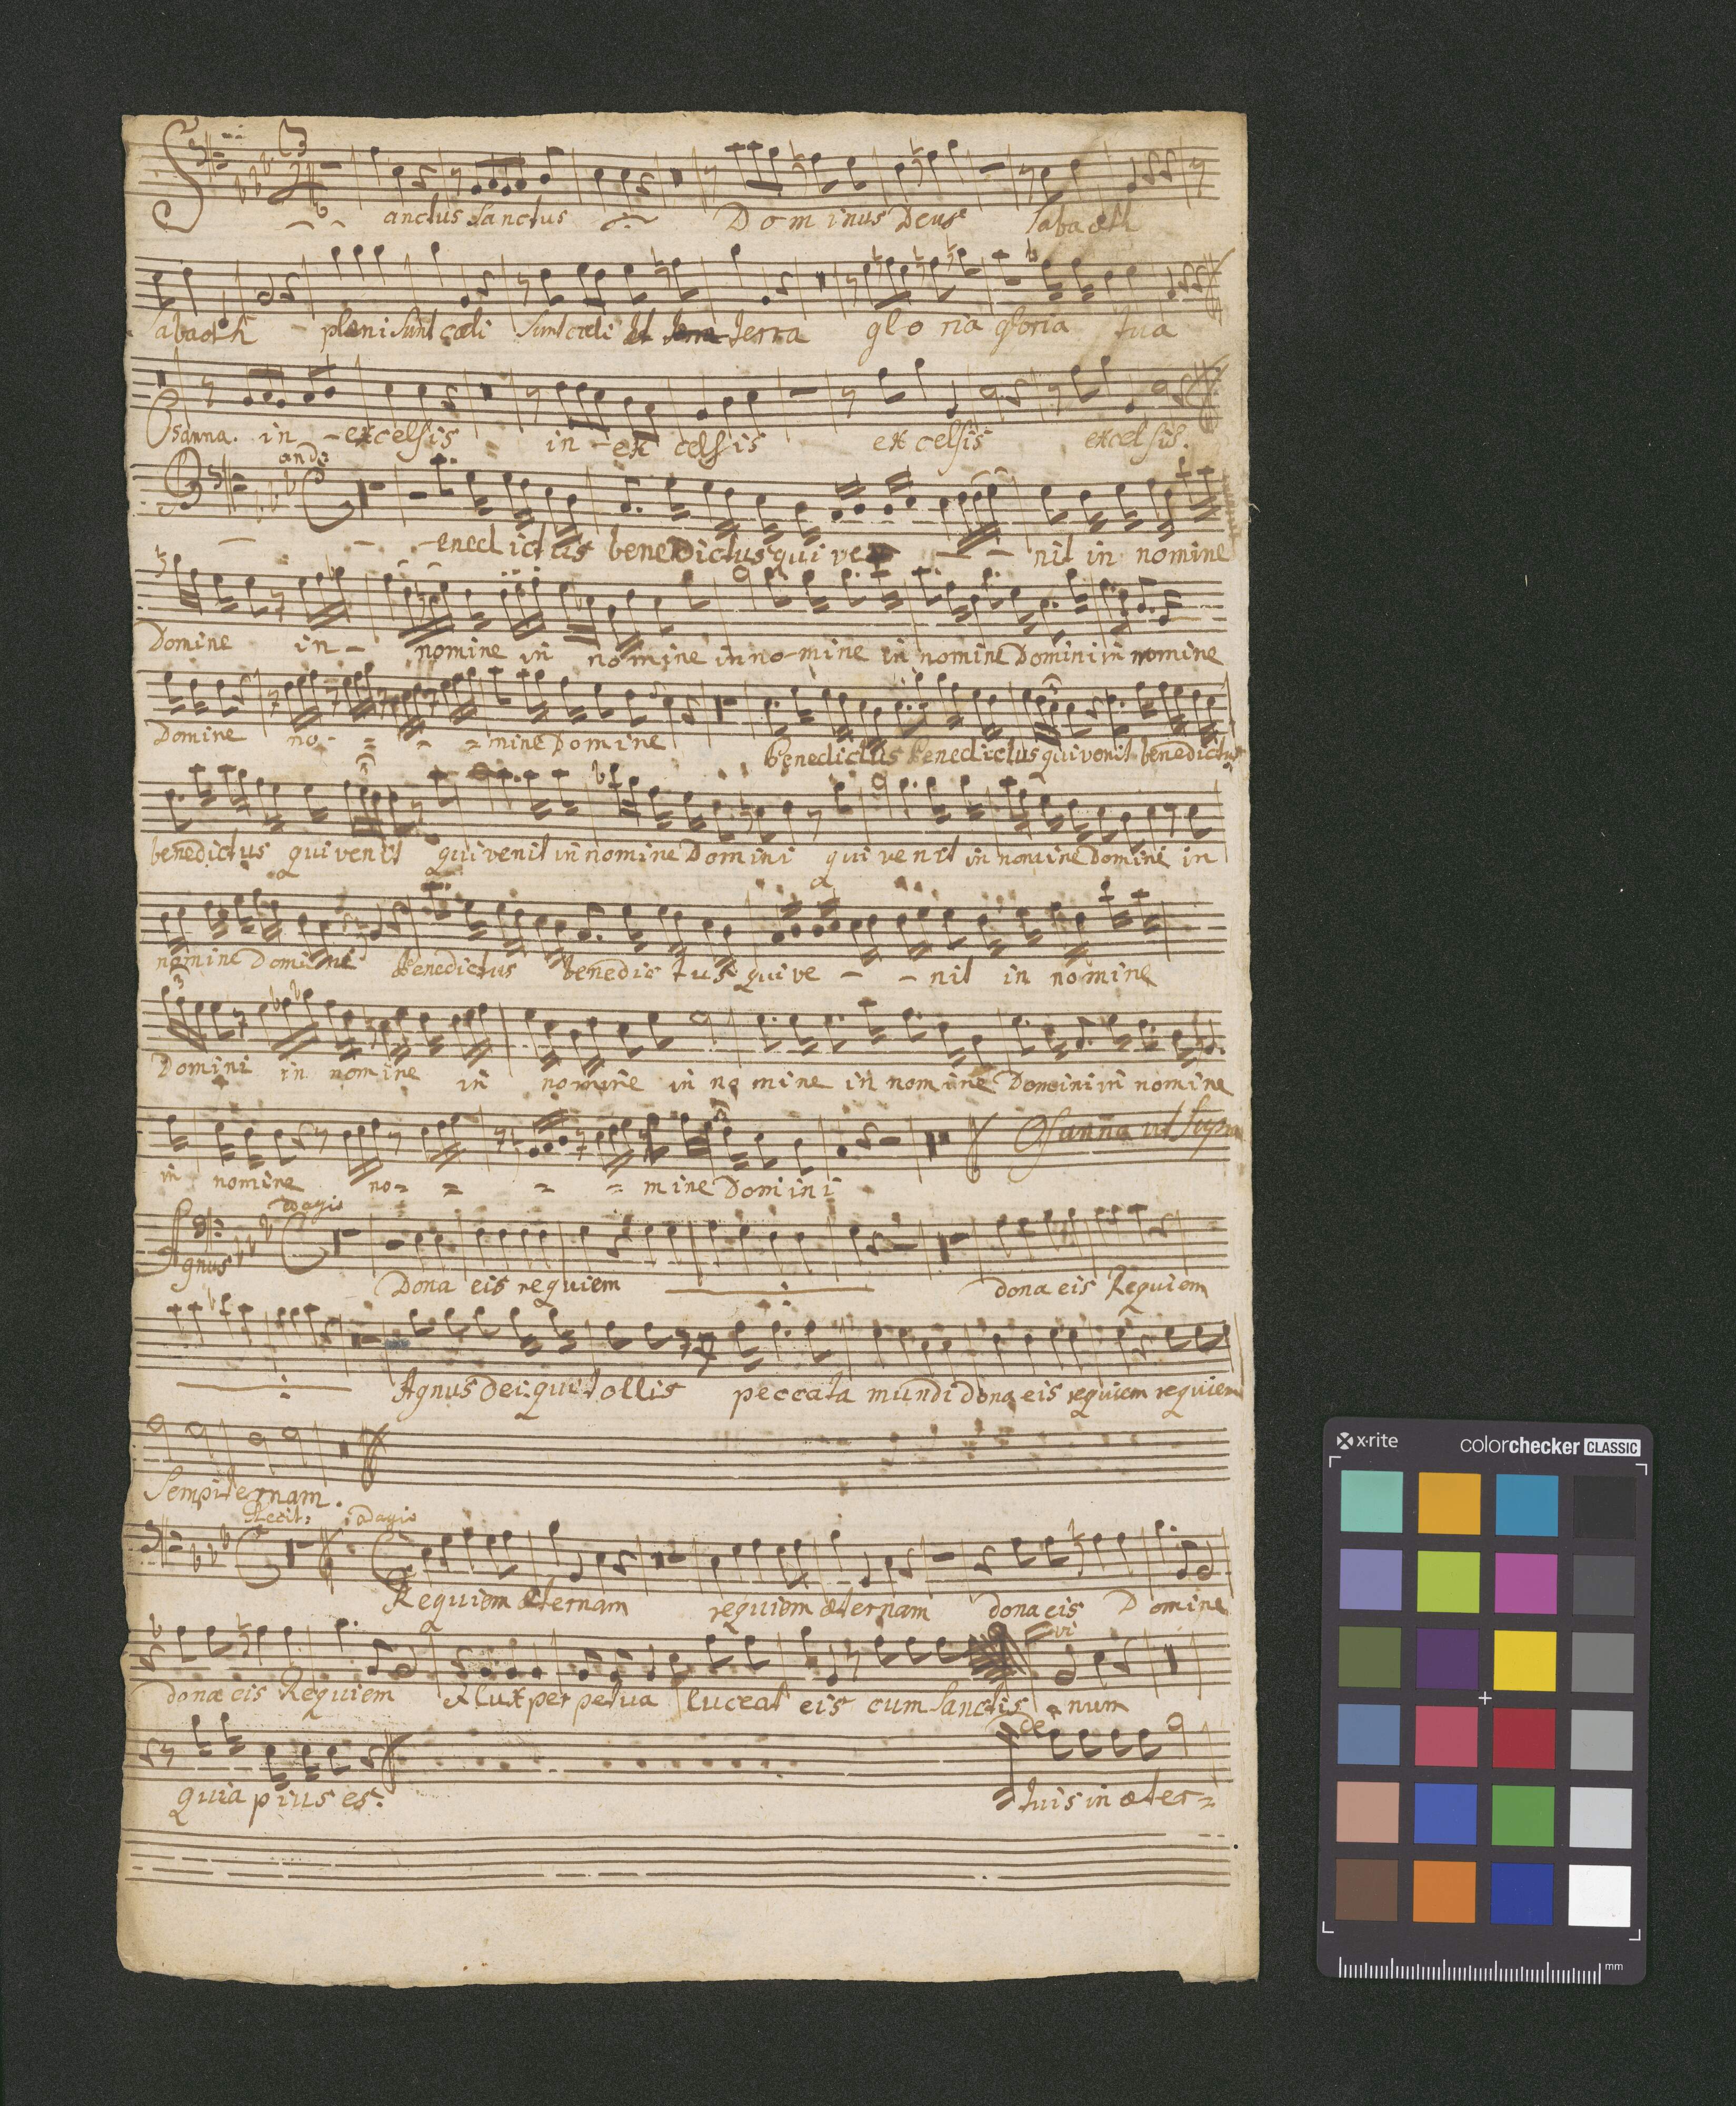 Sanctus Sanctus Dominus Deus Sabaoth
Sabaoth pleni Sunt cæli Sunt cæli et terra gloria gloria tua
Osanna. in - excelsis in - ex celsis excelsis excelsis.
and:
Benedictus benedictus qui ve - - nit in nomine
Domine in - nomine in nomine in no - mine in nomine Domini in nomine
Domine no - = - = mine Domine Benedictus Benedictus qui venit benedictus
benedictus qui venit qui venit in nomine Domini qui venit in nomine Domine in
nomine Domine Benedictus benedictus qui ve - - nit in nomine
3
Domini in nomine in nomine in no mine in nomine Domini in nomine
Osanna ut supra
in nomine no = = = = mine Domini
adagio
Agnus Dona eis requiem dona eis Requiem
Agnus Dei qui tollis peccata mundi dona eis requiem requiem
Sempiternam.
Recit: adagio
Requiem æternam requiem æternam dona eis Domine
vi
dona eis Requiem et lux perpetua luceat eis cum Sanctis num
de
quia pius es: tuis in æter =
x·rite colorchecker CLASSIC
mm